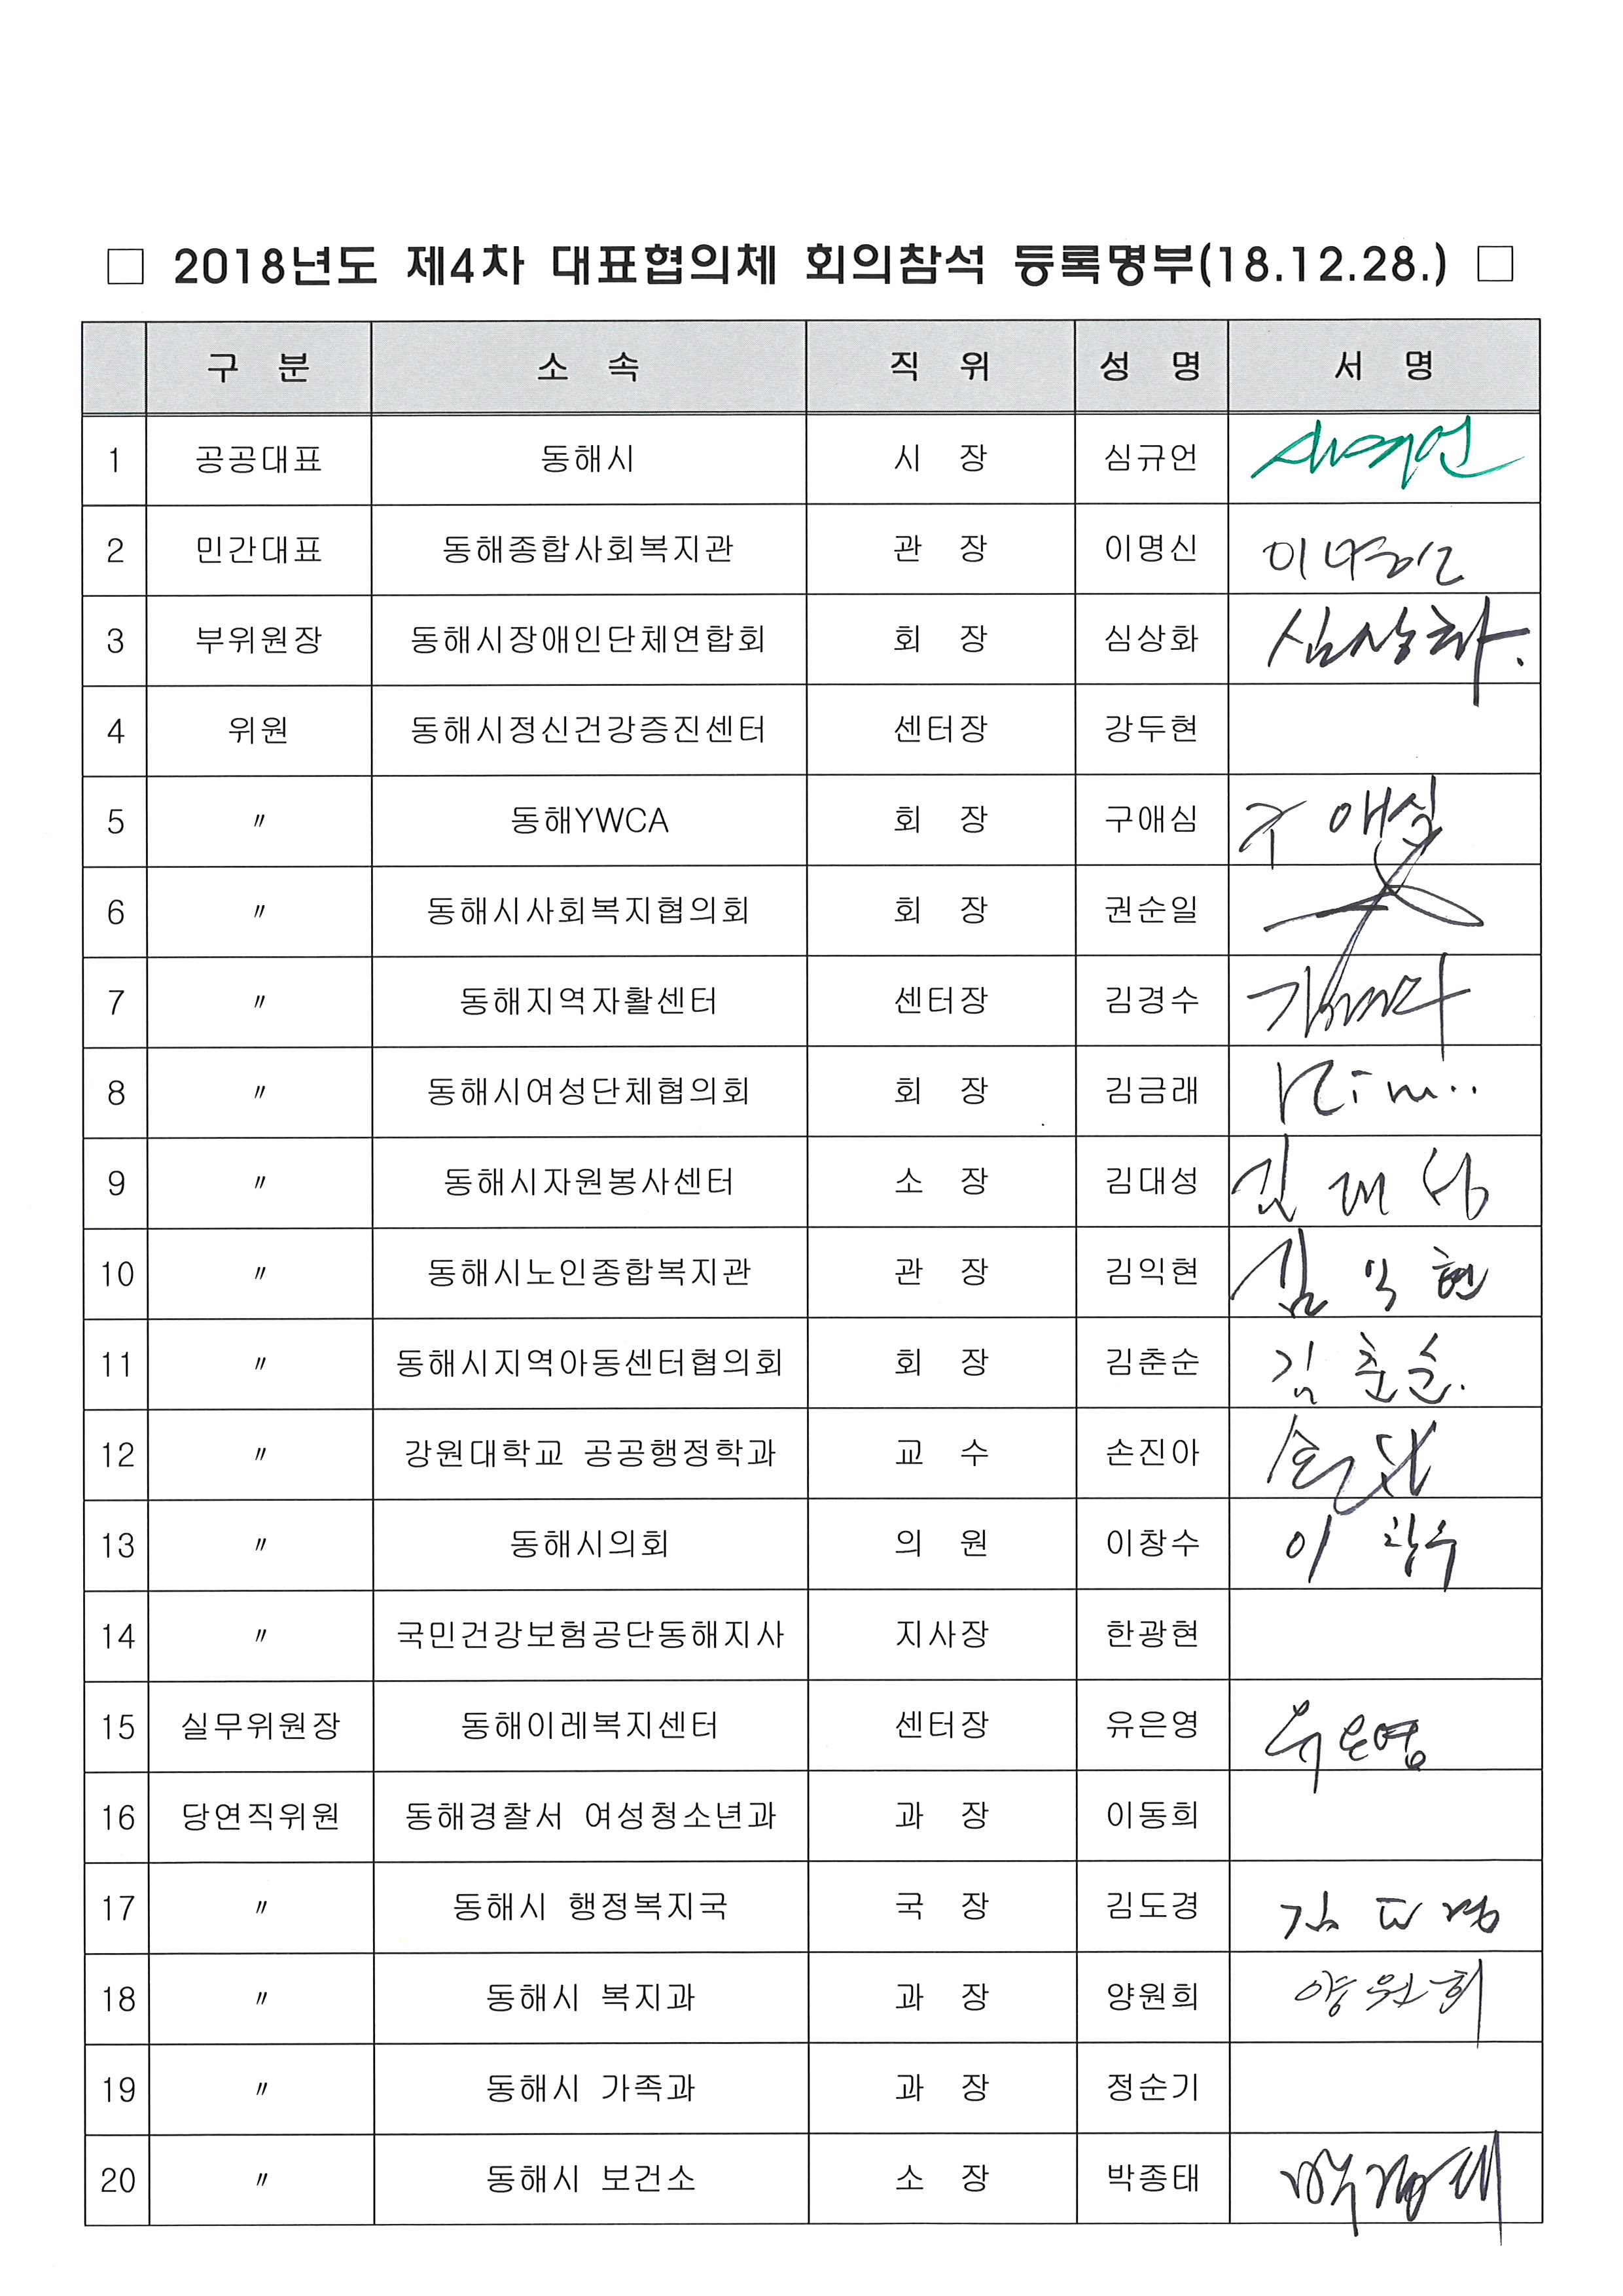 □ 2018년도 제4차 대표협의체 회의참석 등록명부(18.12.28.) □
구 분 소 속 직 위 성 명 서 명
1 공공대표 동해시 시 장 심규언
2 민간대표 동해종합사회복지관 관 장 이명신 이명신
3 부위원장 동해시장애인단체연합회 회 장 심상화 심상화.
4 위원 동해시정신건강증진센터 센터장 강두현
5 〃 동해YWCA 회 장 구애심 구애심
6 〃 동해시사회복지협의회 회 장 권순일
7 〃 동해지역자활센터 센터장 김경수
8 〃 동해시여성단체협의회 회 장 김금래 Kim..
9 〃 동해시자원봉사센터 소 장 김대성 김대성
10 〃 동해시노인종합복지관 관 장 김익현 김익현
11 〃 동해시지역아동센터협의회 회 장 김춘순 김춘순.
12 〃 강원대학교 공공행정학과 교 수 손진아
13 〃 동해시의회 의 원 이창수 이창수
14 〃 국민건강보험공단동해지사 지사장 한광현
15 실무위원장 동해이레복지센터 센터장 유은영 유은영
16 당연직위원 동해경찰서 여성청소년과 과 장 이동희
17 〃 동해시 행정복지국 국 장 김도경 김도경
18 〃 동해시 복지과 과 장 양원희 양원희
19 〃 동해시 가족과 과 장 정순기
20 〃 동해시 보건소 소 장 박종태 박종태